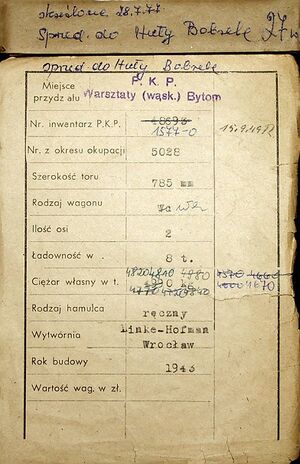 skreślono 28.7.77
Sprzed. do Huty Bobrek
sprzed. do Huty Bobrek
Miejsce przydziału P. K. P.
Warsztaty (wąsk.) Bytom
Nr. inwentarz P.K.P. 48693
1577-0
Nr. z okresu okupacji 5028
Szerokość toru 785 mm
Rodzaj wagonu
Ilość osi 2
Ładowność w . 8 t.
4820 4810 4880 4570 4660
Ciężar własny w t. 4600 4670
4770 4720 4840
Rodzaj hamulca ręczny
Wytwórnia Linke-Hofman
Wrocław
Rok budowy 1943
Wartość wag. w zł.